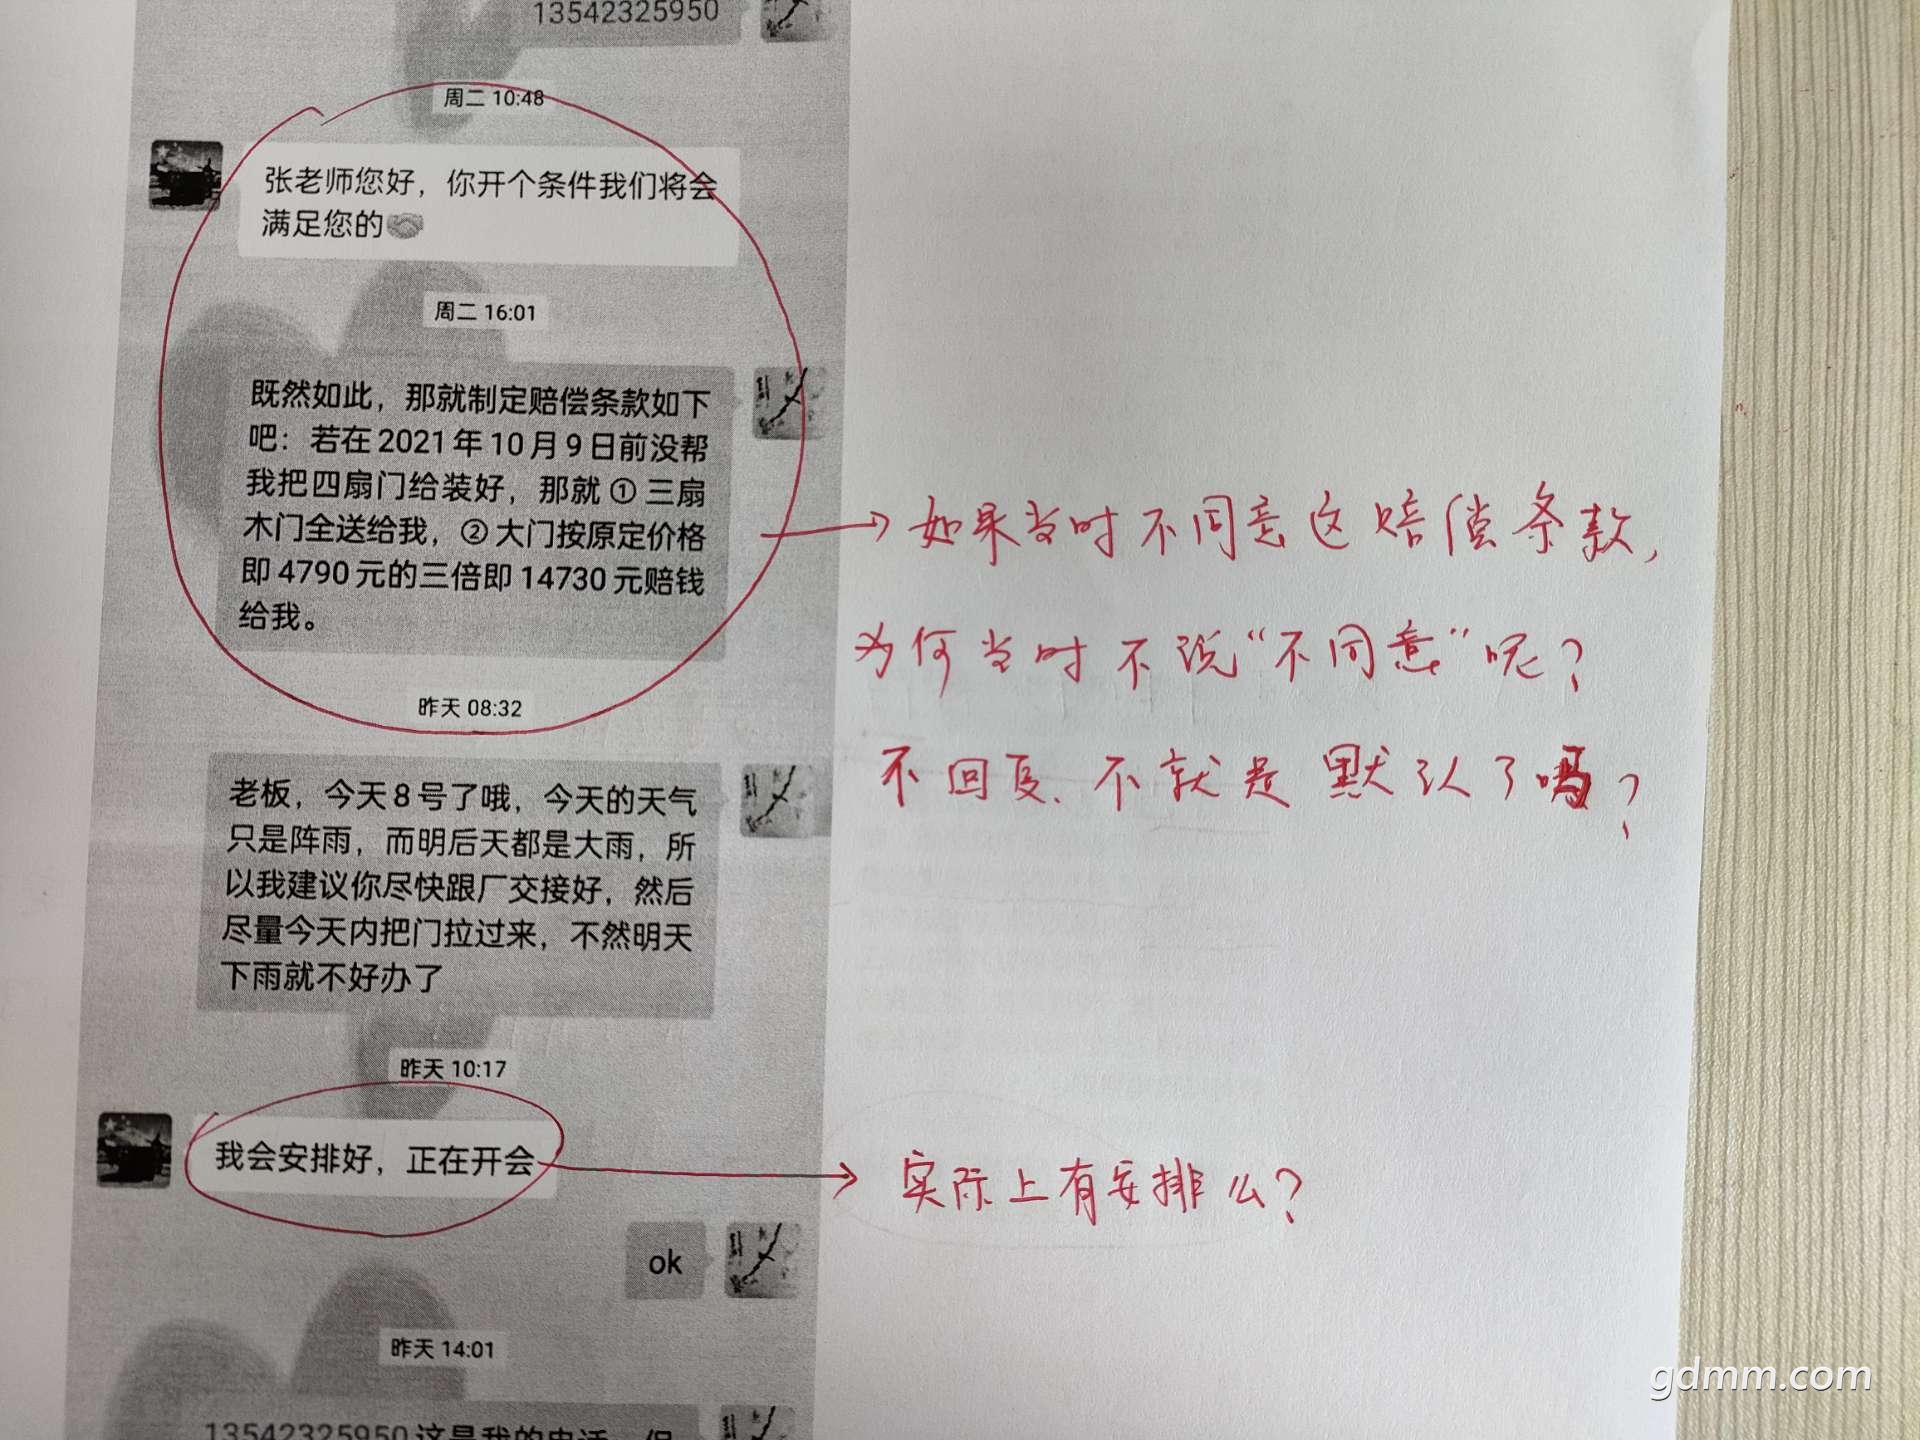 13542325950
周二 10:48
张老师您好，你开个条件我们将会
满足您的🤝
周二 16:01
既然如此，那就制定赔偿条款如下
吧：若在2021年10月9日前没帮
我把四扇门给装好，那就①三扇
木门全送给我，②大门按原定价格
即4790元的三倍即14730元赔钱
给我。
如果当时不同意这赔偿条款，
为何当时不说“不同意”呢？
不回复、不就是默认了吗？
昨天 08:32
老板，今天8号了哦，今天的天气
只是阵雨，而明后天都是大雨，所
以我建议你尽快跟厂交接好，然后
尽量今天内把门拉过来，不然明天
下雨就不好办了
昨天 10:17
我会安排好，正在开会
实际上有安排么？
ok
昨天 14:01
13542325950这是我的电话，但
gdmm.com